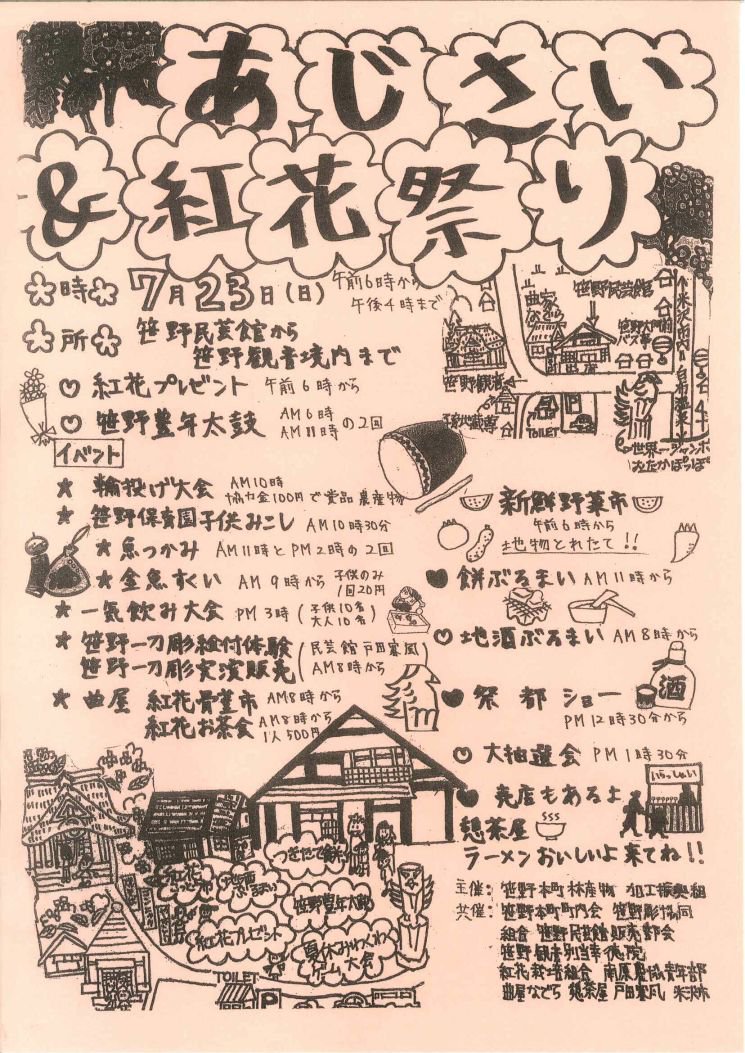 あじさい
&紅花祭り
時 7月23日(日) 午前6時から
午後4時まで
所 笹野民芸館から
笹野観音境内まで
紅花プレゼント 午前6時から
笹野豊年太鼓 AM6時
AM11時の2回
イベント
輪投げ大会 AM10時
協力金100円で賞品農産物
笹野保育園子供みこし AM10時30分
魚つかみ AM11時とPM2時の2回
金魚すくい AM9時から 子供のみ
1回20円
一気飲み大会 PM3時(子供10名
大人10名)
笹野一刀彫絵付体験
笹野一刀彫実演販売
(民芸館 戸田寒風
AM8時から)
曲屋 紅花骨董市 AM8時から
紅花お茶会 AM8時から
1人500円
笹野民芸館
曲家
笹野大門前
バス亭
笹野観音
子育地蔵尊
TOILET
↑米沢市内
白布温泉
世界一ジャンボ
おたかぽっぽ
新鮮野菜市
午前6時から
地物とれたて!!
餅ぶるまい AM11時から
地酒ぶるまい AM8時から
酒
祭都ショー
PM12時30分から
大抽選会 PM1時30分
売店もあるよ
いらっしゃい
憩茶屋
ラーメンおいしいよ来てね!!
つきたて餅
地酒ぶるまい
笹野豊年太鼓
紅花プレゼント
夏休みわくわく
ゲーム大会
TOILET
主催:笹野本町林産物加工振興組
共催:笹野本町町内会 笹野彫協同
組合 笹野民芸館販売部会
笹野観音別当幸徳院
紅花栽培組合 南原農協青年部
曲屋なでら 憩茶屋 戸田寒風 米沢市